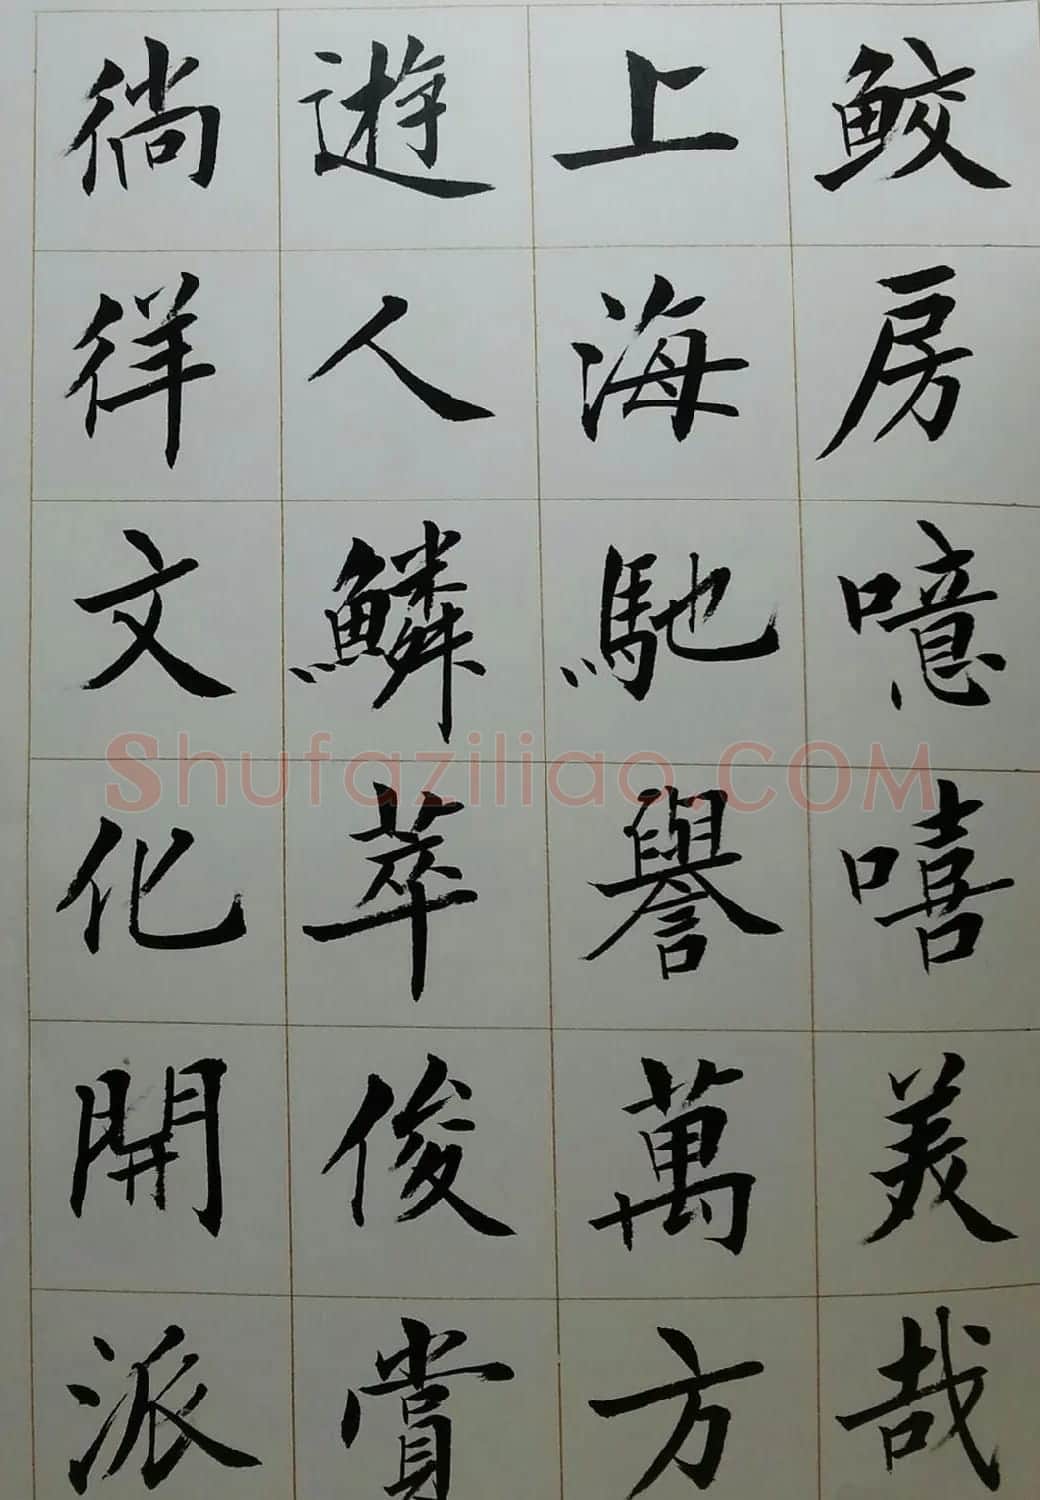 鲛房噫嘻美哉
上海馳譽萬方
遊人鱗萃俊賞
徜徉文化開派
Shufaziliao.COM